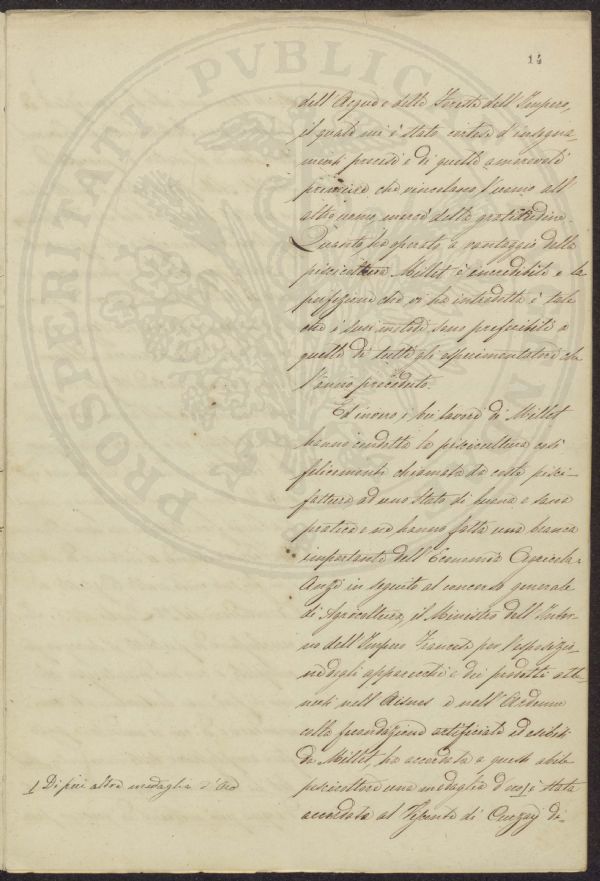 14
dell'Acque e delle Foreste dell'Impero,
il quale mi è stato cortese d'insegna-
menti precisi e di quelle amorevoli
premure che vincolano l'uomo all'
altro uomo, mercè della gratitudine.
Quanto ha operato a vantaggio della
piscicultura Millet è incredibile e la
perfezione che vi ha introdotta è tale
che i suoi metodi sono preferibili a
quelli di tutti gli esperimentatori che
l'anno preceduto.
Ed invero, i bei lavori di Millet
hanno condotta la piscicultura così
felicemente chiamata da coste pisci-
fattura, ad uno stato di buona e sana
pratica e ne hanno fatta una branca
importante dell'Economia Agricola.
Anzi in seguito al concorso generale
di Agricoltura, il Ministro dell'Inter-
no dell'Impero Francese per l'esposizio-
ne degli apparecchi e dei prodotti otte-
nuti nell'Aisnes e nell'Ardenne
colla fecondazione artificiale ed esibiti
da Millet, ha accordata a questo abile
piscicultore una medaglia d'oro 1 è stata
accordata al Visconte di Curzay di-
1 Di più altra medaglia d'Oro
PROSPERITATI PUBLICAE